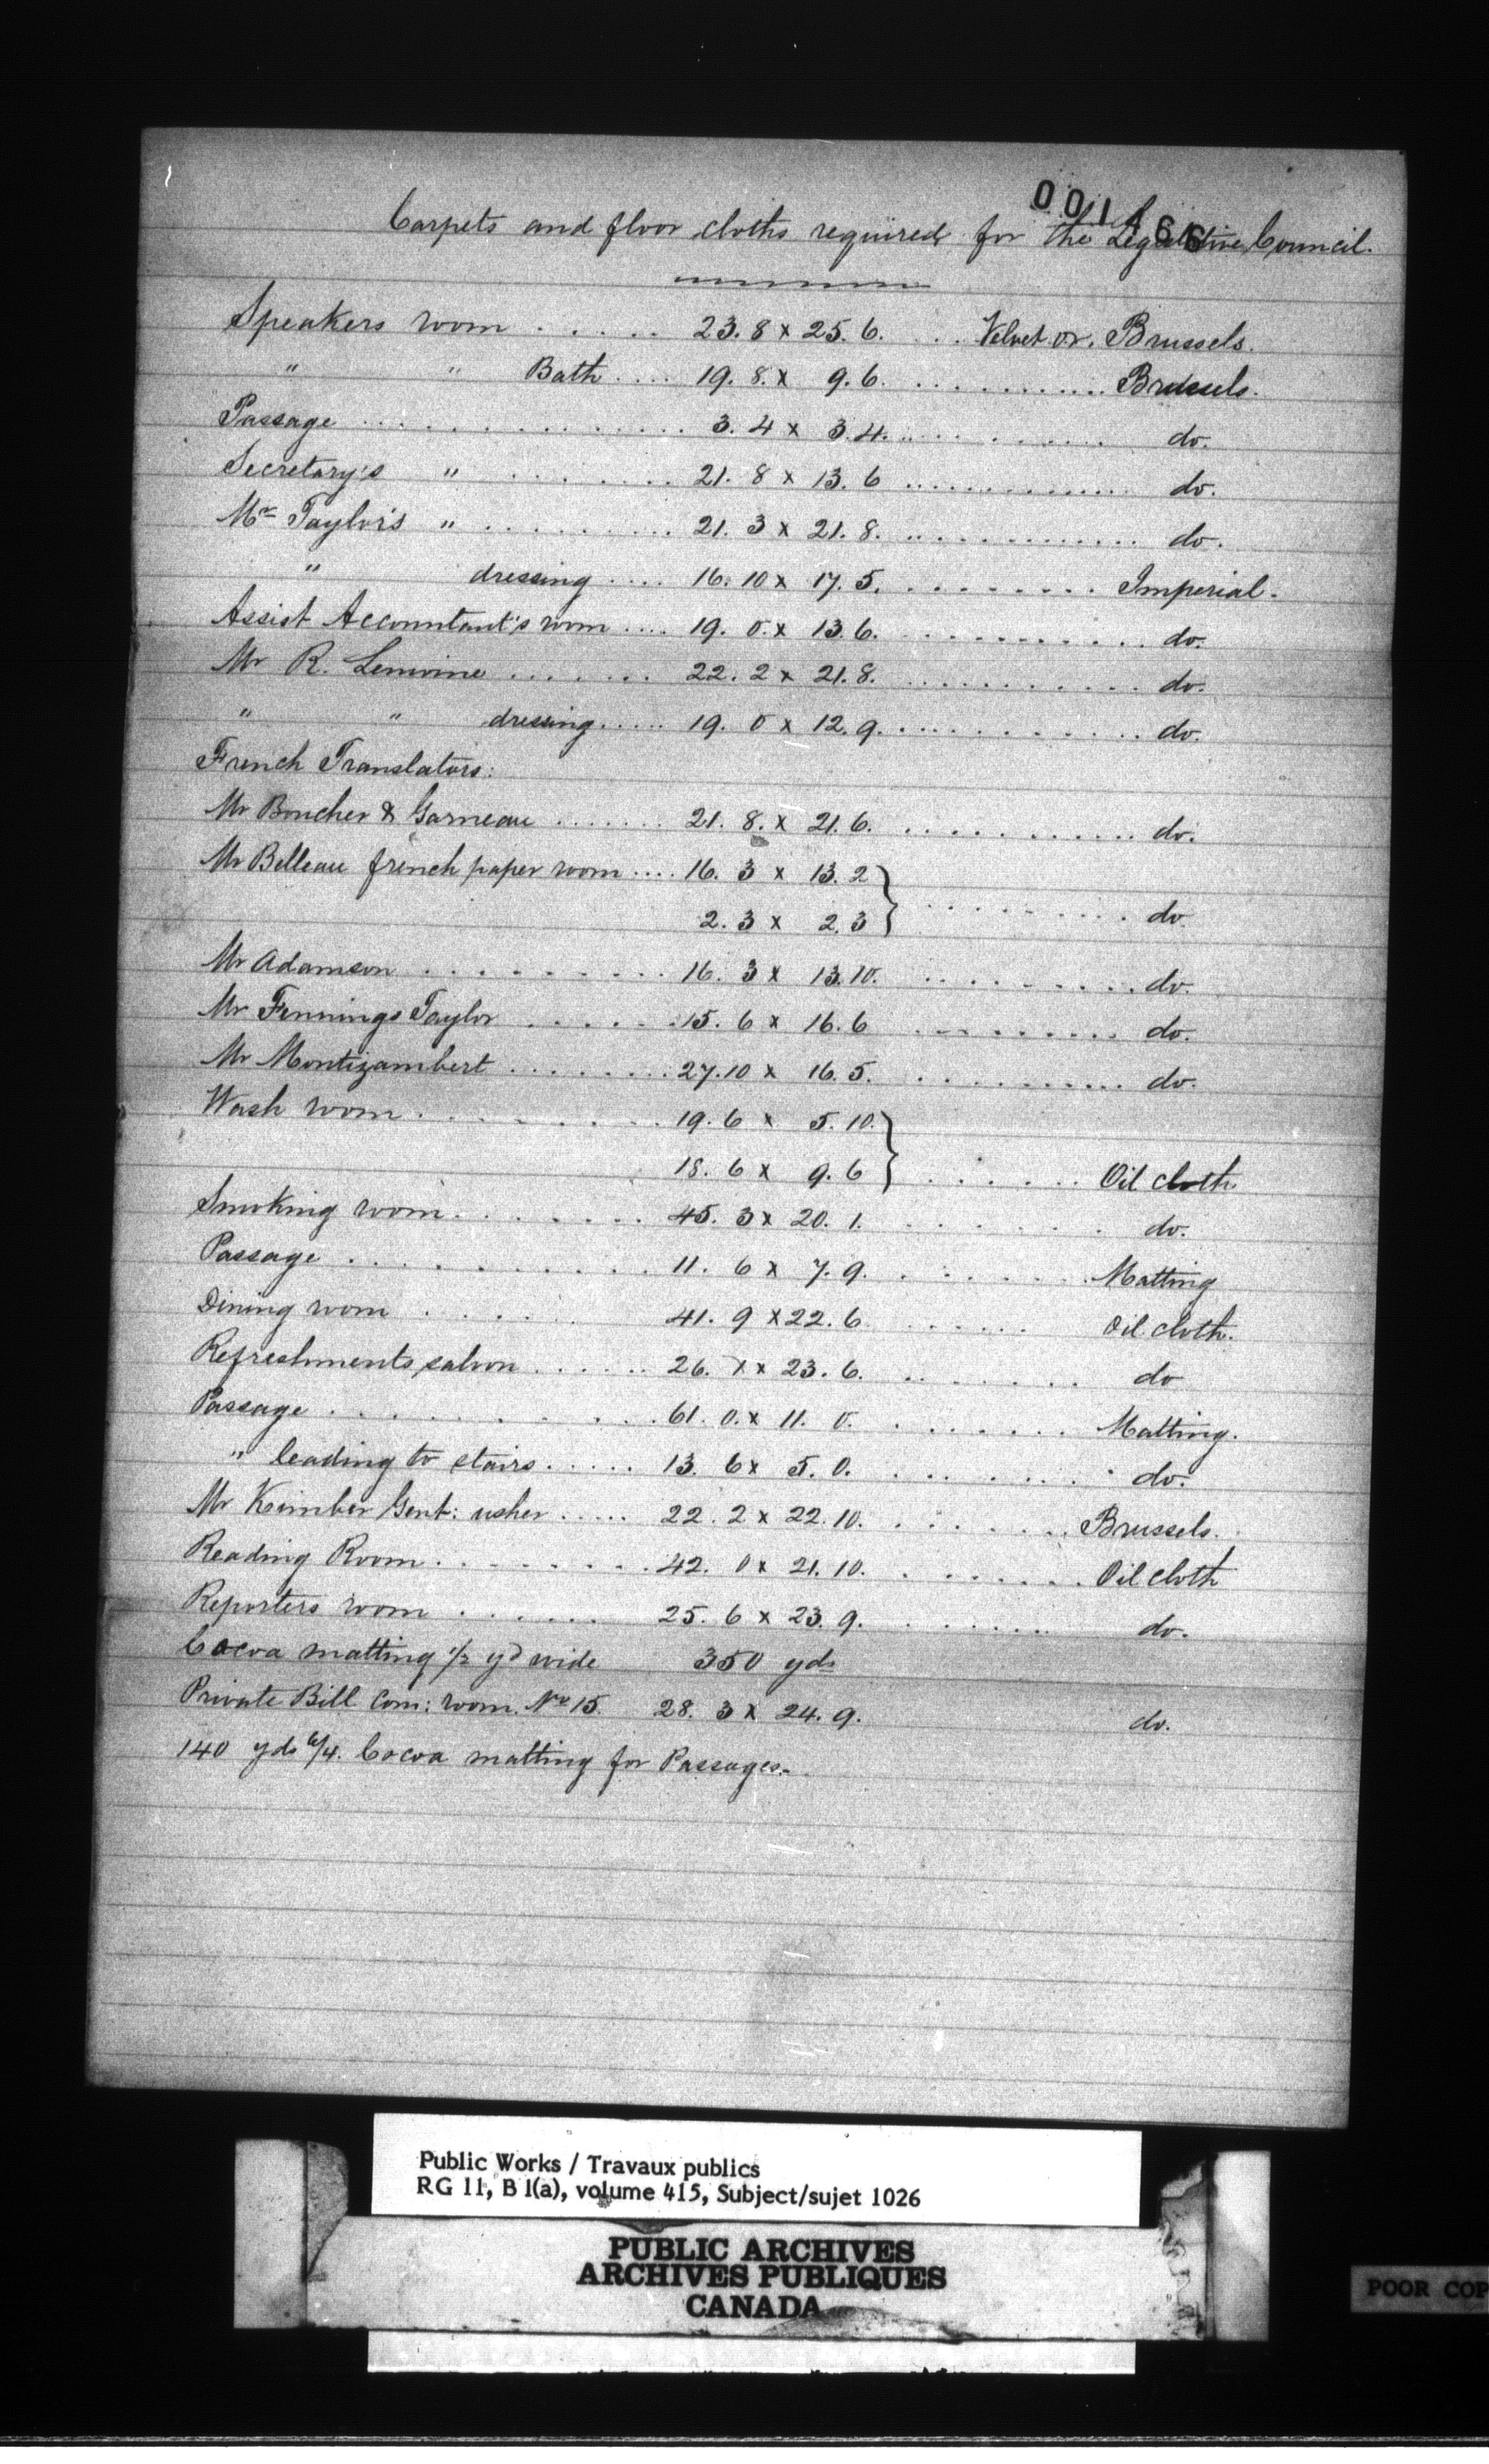 001466
Carpets and floor cloths required for the Legislative Council.
Speakers room ..... 23.8 x 25.6. .. Velvet or. Brussels.
" " Bath .... 19.8. x 9.6. ............ Brussels.
Passage ............... 3.4 x 3.4. ............ do.
Secretary's " ........ 21.8 x 13.6 ............... do.
Mr Taylor's " .......... 21.3 x 21.8. .............. do.
" dressing .... 16.10 x 17.5. ......... Imperial.
Assist Accountant's room .... 19.0. x 13.6. ........... do.
Mr R. Lemoine ....... 22.2 x 21.8. ........... do.
" " dressing ..... 19.0 x 12.9. ............ do.
French Translators:
Mr Boucher & Garneau ....... 21.8. x 21.6. ............ do.
Mr Belleau french paper room .... 16.3 x 13.2 }
2.3 x 2.3 } ......... do.
Mr Adamson .......... 16.3 x 13.10. .......... do.
Mr Fennings Taylor ....... 15.6 x 16.6 ......... do.
Mr Montizambert ........ 27.10 x 16.5. .......... do.
Wash room ......... 19.6 x 5.10. }
18.6 x 9.6 } ....... Oil cloth
Smoking room ........ 45.3 x 20.1. ...... do.
Passage .......... 11.6 x 7.9. ....... Matting
Dining room ...... 41.9 x 22.6 ...... Oil cloth.
Refreshments saloon ...... 26. x 23.6. ....... do
Passage ........... 61.0. x 11.0. ....... Matting.
" leading to stairs ..... 13.6 x 5.0. ........ do.
Mr Kimber Gent: usher ..... 22.2 x 22.10. ....... Brussels.
Reading Room ......... 42.0 x 21.10. ....... Oil cloth
Reporters room ...... 25.6 x 23.9. ....... do.
Cocoa matting 1/2 yd wide 350 yds
Private Bill Com: room. No 15. 28.3 x 24.9. do.
140 yds 6/4. Cocoa matting for Passages.
Public Works / Travaux publics
RG 11, B 1(a), volume 415, Subject/sujet 1026
PUBLIC ARCHIVES
ARCHIVES PUBLIQUES
CANADA
POOR COP